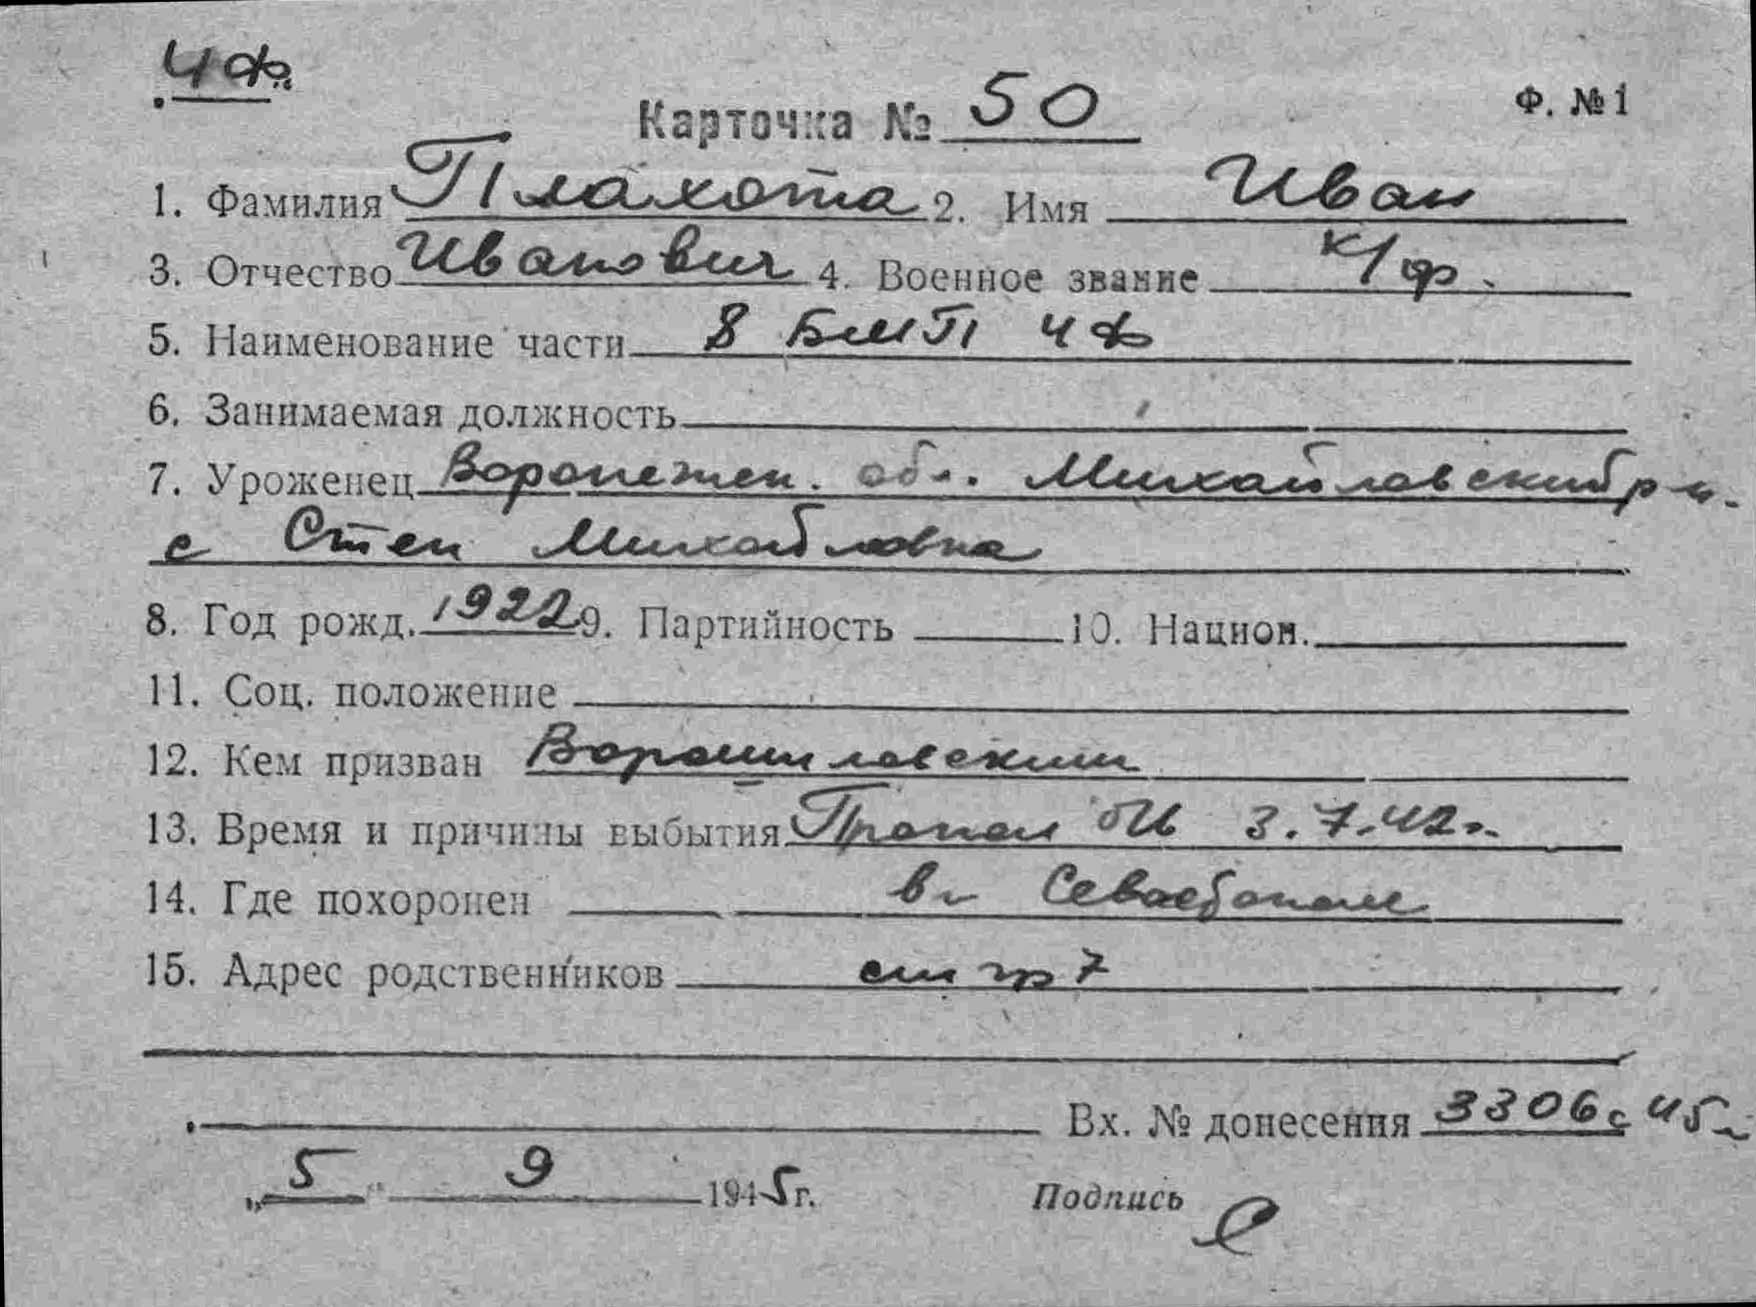 ЧФ.
Ф. №1
Карточка № 50
1. Фамилия Плахота 2. Имя Иван
3. Отчество Иванович 4. Военное звание к/ф.
5. Наименование части 8 БМП ЧФ
6. Занимаемая должность
7. Уроженец Воронежск. обл. Михайловский р-н.
с Степ Михайловка
8. Год рожд. 1922 9. Партийность 10. Национ.
11. Соц. положение
12. Кем призван Ворошиловским
13. Время и причины выбытия Пропал б/в 3.7.42г.
14. Где похоронен в г Севастополе
15. Адрес родственников см гр 7
Вх. № донесения 3306с 45г
„5" 9 1945г. Подпись